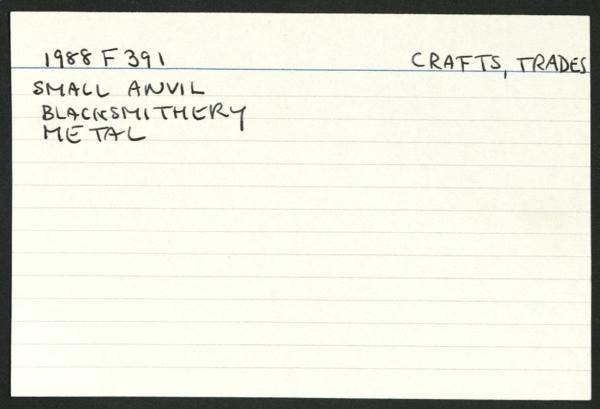 1988 F 391 CRAFTS, TRADES
SMALL ANVIL
BLACKSMITHERY
METAL